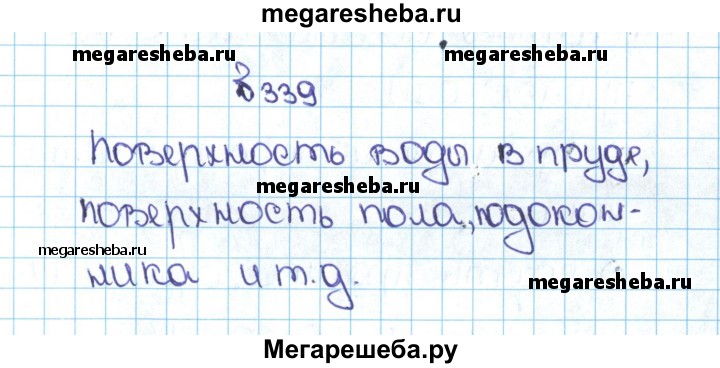 megaresheba.ru
megaresheba.ru megaresheba.ru
339
поверхность воды в пруде,
megaresheba.ru
поверхность пола, подокон-
megaresheba.ru
ника и т.д. megaresheba.ru
Мегарешеба.ру